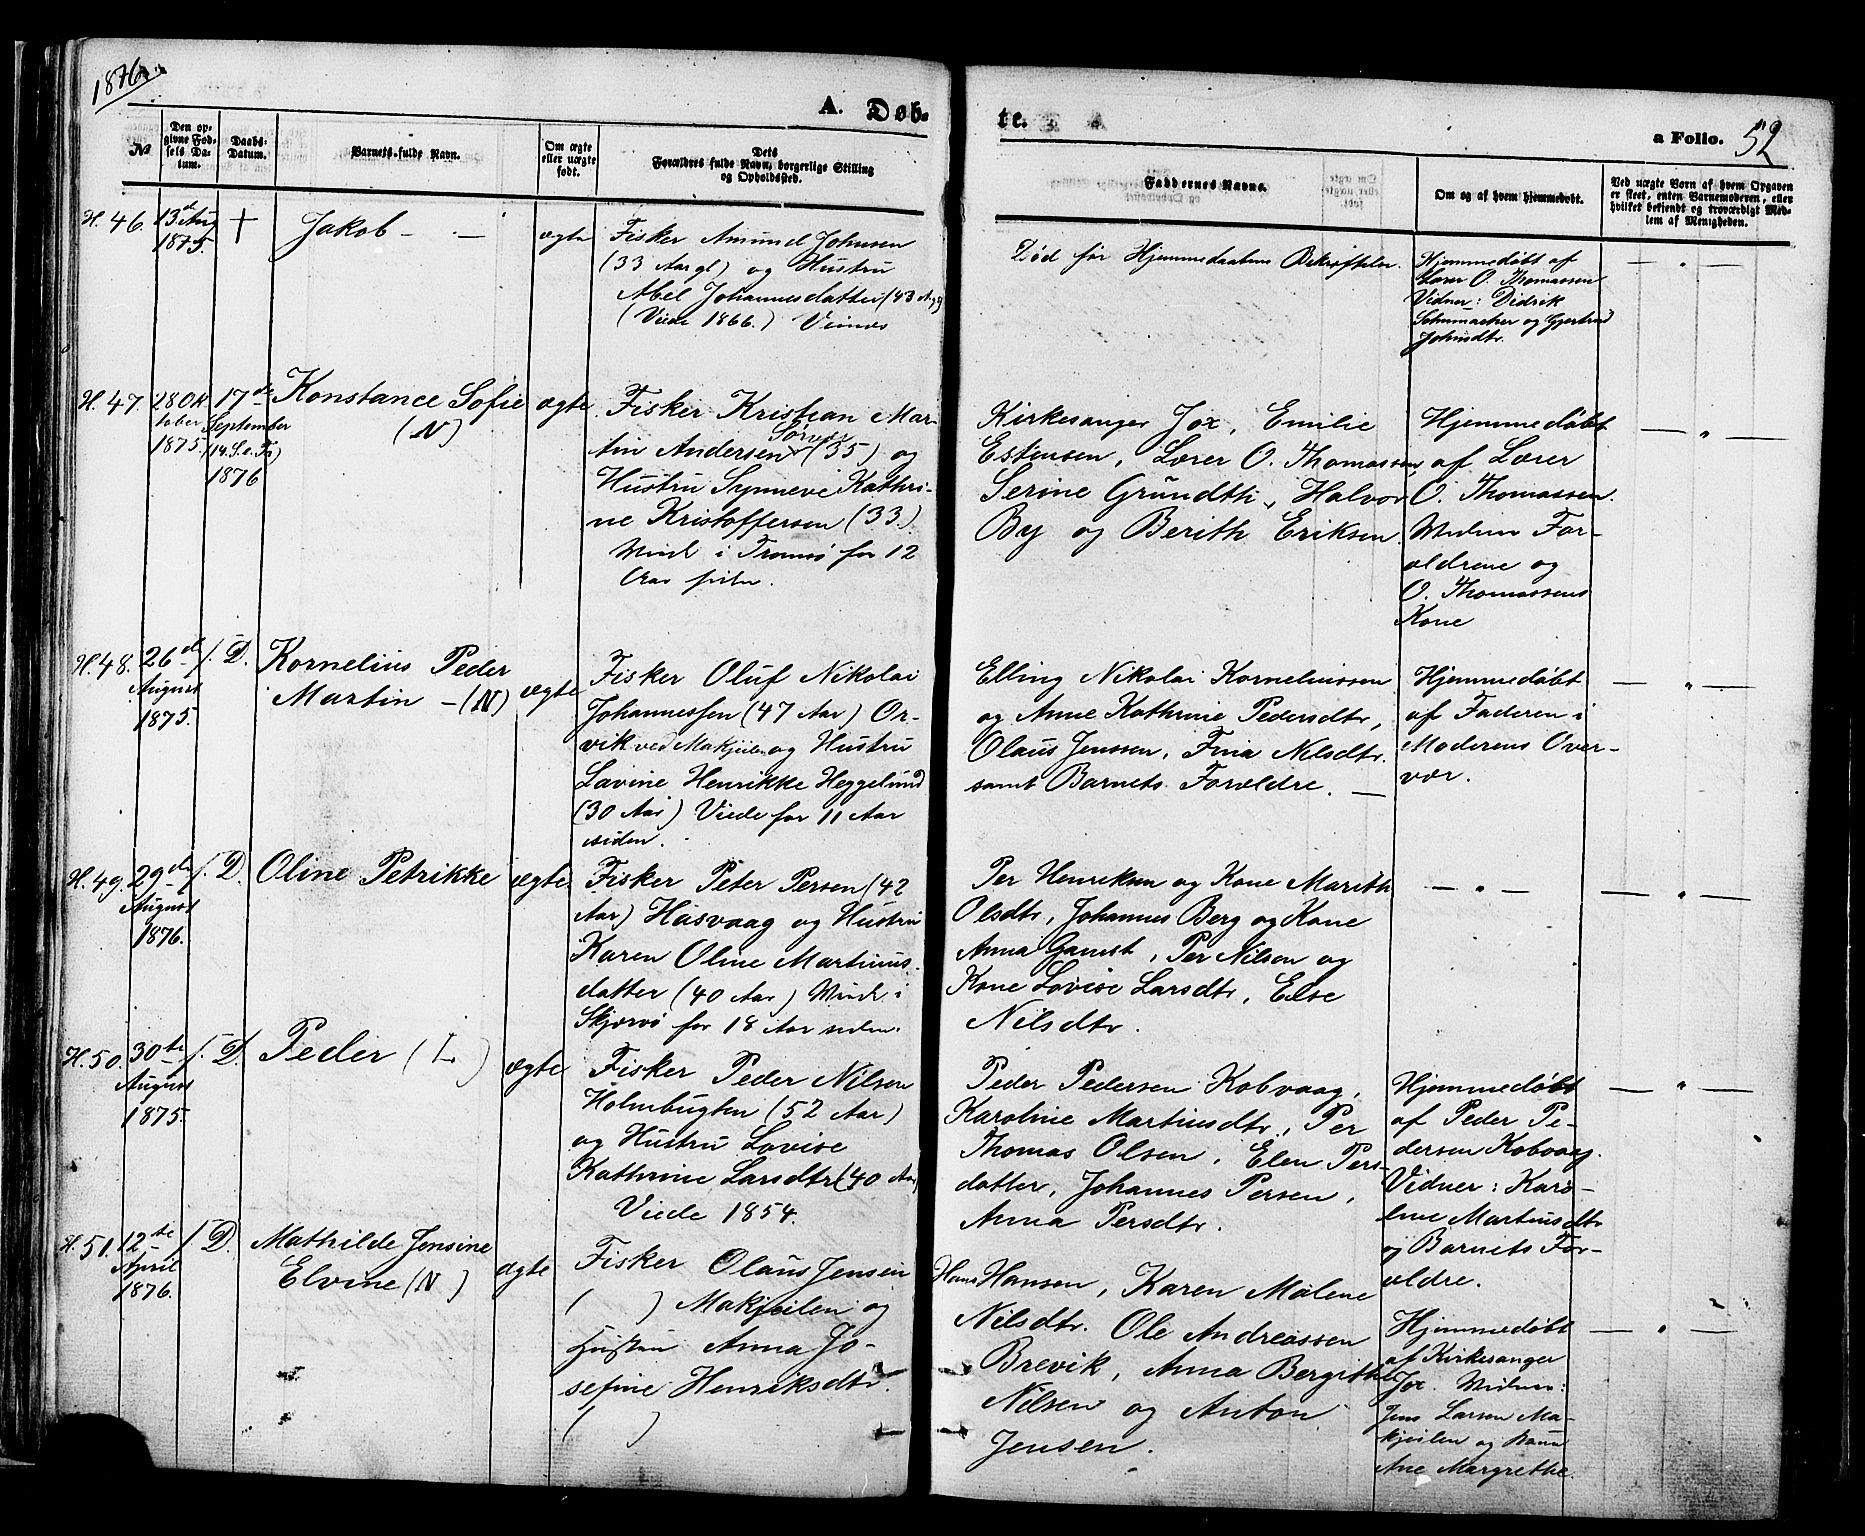 1876.
A. Døb-
te.
a Folio. 52
No
Den op-
givne Fød-
sels Da-
tum.
Daabs-
Datum.
Barnets fulde Navn.
Om ægte
eller uægte
født.
Dets
Forældres fulde Navn, borgerlige Stilling
og Opholdssted.
Faddernes Navne.
Om og af hvem hjemmedøbt.
Ved uægte Born af hvem Opgaven
er skeet, enten Barnemoderen, eller
hvilket bekjendt og troværdigt Med-
lem af Menigheden.
H. 46.
13de Aug
1875.
+
Jakob — —
ægte
Fisker Amund Johnsen
(33 Aar gl) og Hustru
Abel Johannesdatter (43 A. g)
(Viede 1866.)
Død før Hjemmedaabens Bekræftelse.
Hjemmedøbt af
Lærer O. Thomassen
Vidner: Didrik
Schumacher og Gjertrud
Johnsdtr.
— " —
H. 47.
28 Ok
tober
1875.
17de
September
(14. S. e. Tr)
1876
Konstance Sofie
(N)
ægte
Fisker Kristian Mar-
tin Andersen Sørvær (35) og
Hustru Synneve Kathri-
ne Kristoffersen (33.)
Viede i Tromsø for 12
Aar siden.
Kirkesanger Jox, Emilie
Estensen, Lærer O. Thomassen,
Serine Grundth, Halvor
By og Berith Eriksen.
Hjemmedøbt
af Lærer
O. Thomassen.
Vidner For-
ældrene og
O. Thomassens
Kone
— " —
H. 48.
26de
August
1875.
s. D.
Kornelius Peder
Martin — (N)
ægte
Fisker Oluf Nikolai
Johannessen (47 Aar) Or-
vik ved Makjeilen og Hustru
Lavine Henrikke Heggelund
(30 Aar) Viede for 11 Aar
siden.
Elling Nikolai Korneliussen
og Anne Kathrine Pedersdtr,
Olaus Jenssen, Fina Nilsdtr.
samt Barnets Forældre. —
Hjemmedøbt
af Faderen i
Moderens Over-
vær.
— " —
H. 49.
29de
August
1876.
s. D.
Oline Petrikke
ægte
Fisker Peter Persen (42
Aar) Hasvaag og Hustru
Karen Oline Martinus-
datter (40 Aar) Viede i
Skjærvø for 18 Aar siden.
Per Henriksen og Kone Marith
Olsdtr, Johannes Berg og Kone
Anna Gamst, Per Nilsen og
Kone Lovise Larsdtr, Else
Nilsdtr.
— " —
— " —
H. 50.
30te
August
1875.
s. D.
Peder (L)
ægte
Fisker Peder Nilsen
Holmbugten (52 Aar)
og Hustru Lovise
Kathrine Larsdtr (40 Aar)
Viede 1854.
Peder Pedersen Kobvaag,
Karoline Martinsdtr, Per
Thomas Olsen, Elen Pers-
datter, Johannes Persen,
Anna Persdtr.
Hjemmedøbt
af Peder Pe-
dersen Kobvaag.
Vidner: Karo-
line Martinsdtr
og Barnets For-
ældre.
— " —
H. 51.
12te
April
1876.
s. D.
Mathilde Jensine
Elvine (N)
ægte
Fisker Olaus Jensen
( ) Makjeilen og
Hustru Anna Jo-
sefine Henriksdtr.
( )
Hans Hansen, Karen Malene
Nilsdtr. Ole Andreassen
Brevik, Anna Bergithe
Nilsen og Anton
Jensen.
Hjemmedøbt
af Kirkesanger
Jox. Vidner:
Jens Larsen Ma-
kjeilen og
Ane Margrethe.
— " —